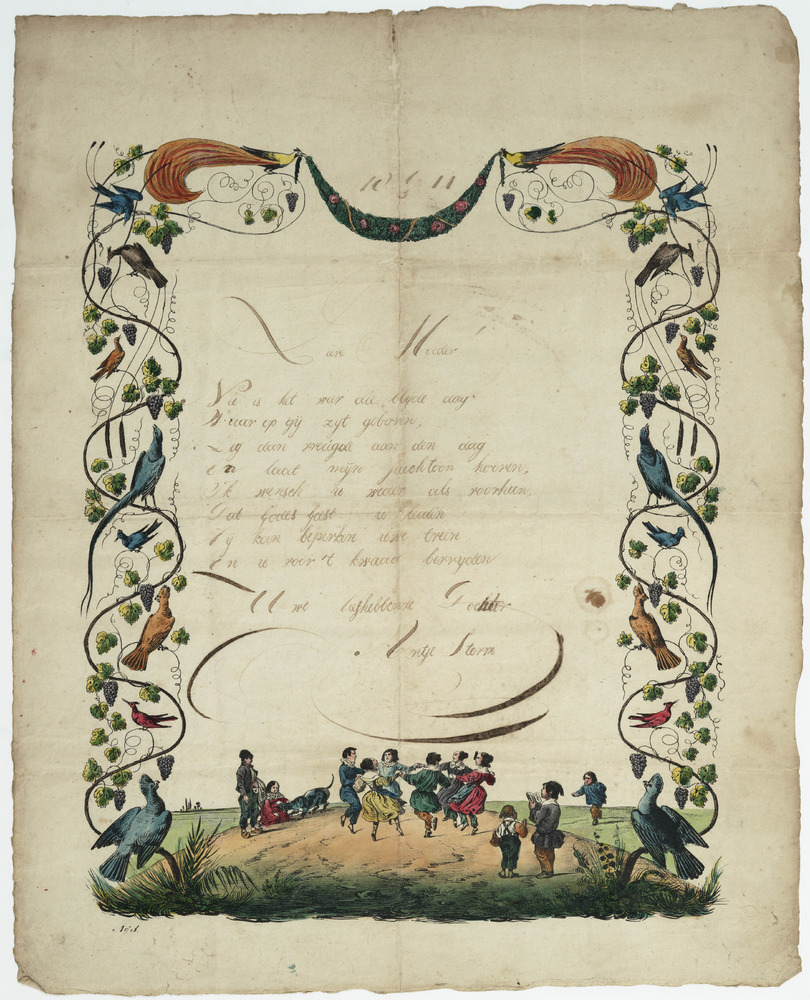 Lave Moeder
Nu is het weer die blyde dag
Waar op gij zyt geboren,
Leg dan vreugde aan den dag
en laat mijn juichtoon hooren,
Ik wensch u weer als voorheen
Dat Godes Geest u
Hy kan beperken uwe treen
En u voor 't kwaad bevryden
Uwe liefhebbende Dochter
Antje Storm
No. 1.